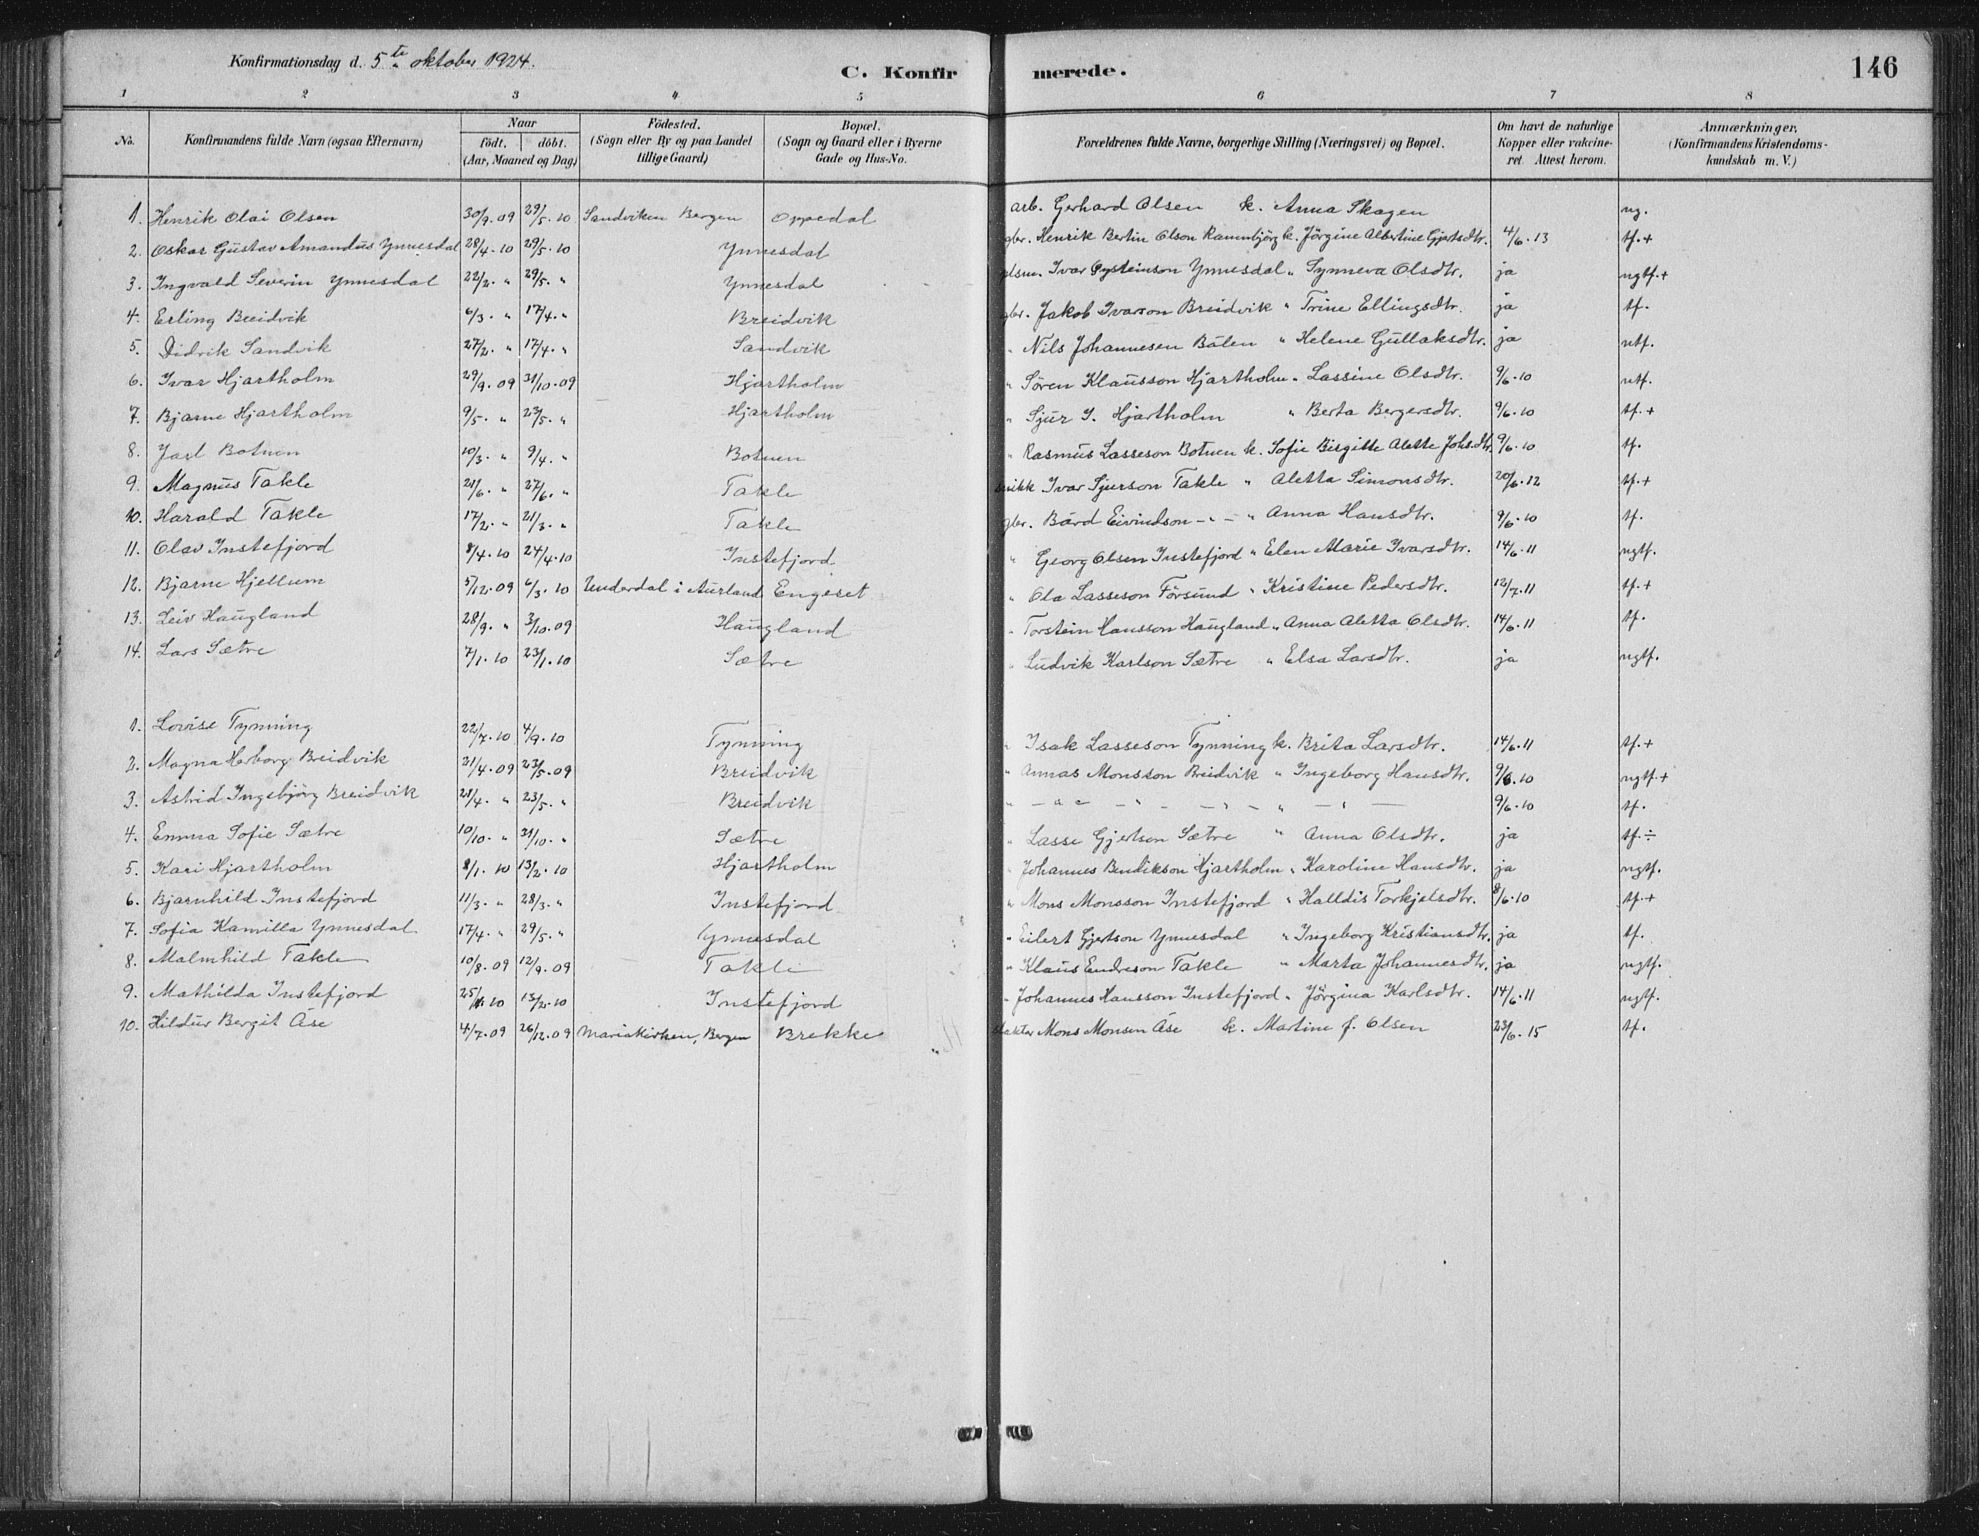 Konfirmationsdag d. 5te oktober 1924.
C. Konfirmerede.
146
1 2 3 4 5 6 7 8
No. Konfirmandens fulde Navn (ogsaa Efternavn) Naar födt. döbt. (Aar, Maaned og Dag) Födested. (Sogn eller By og paa Landet tillige Gaard) Bopæl. (Sogn og Gaard eller i Byerne Gade og Hus-No. Forældrenes fulde Navne, borgerlige Stilling (Næringsvei) og Bopæl. Om havt de naturlige Kopper eller vakcineret. Attest herom. Anmærkninger, (Konfirmandens Kristendomskundskab m. V.)
1. Henrik Olai Olsen 30/9.09 29/5.10 Sandviken Bergen Oppedal arb. Gerhard Olsen k. Anna Skagen ng.
2. Oskar Gustav Amandus Ynnesdal 28/4.10 29/5.10 Ynnesdal gbr. Henrik Bertin Olson Rammbjörg k. Jörgine Albertine Gjertsdtr. 4/6.13 tf.+
3. Ingvald Severin Ynnesdal 22/2. " 29/5. " Ynnesdal Ivar Öysteinson Ynnesdal " Synneva Olsdtr. ja ngtf.+
4. Erling Breidvik 6/3. " 17/4. " Breidvik gbr. Jakob Ivarson Breidvik " Trine Ellingsdtr. ja tf.
5. Didrik Sandvik 27/2. " 17/4. " Sandvik " Nils Johannesen Bálen " Helene Gullaksdtr. ja ntf.
6. Ivar Hjartholm 29/9.09 31/10.09 Hjartholm " Sören Klausson Hjartholm " Lassine Olsdtr. 9/6.10 ntf.
7. Bjarne Hjartholm 9/5. " 23/5. " Hjartholm " Sjur I. Hjartholm " Berta Bergersdtr. 9/6.10 tf.+
8. Jarl Botnen 10/3. " 9/4. " Botnen " Rasmus Lasseson Botnen k. Sofie Birgitte Alette Johsdtr. 9/6.10 tf.
9. Magnus Takle 21/6. " 27/6. " Takle Ivar Sjurson Takle " Aletta Simonsdtr. 20/6.12 tf.+
10. Harald Takle 17/2. " 21/3. " Takle gbr. Bård Eivindson - " - " Anna Hansdtr. 9/6.10 tf.
11. Olav Instefjord 8/4.10 24/4.10 Instefjord " Georg Olsen Instefjord " Elen Marie Ivarsdtr. 14/6.11 ngtf.
12. Bjarne Hjellum 5/12.09 6/3.10 Underdal i Aurland Engeset " Ola Lasseson Försund " Kristine Pedersdtr. 12/7.11 tf.+
13. Leiv Haugland 28/9. " 3/10.09 Haugland " Torstein Hansson Haugland " Anna Aletta Olsdtr. 14/6.11 tf.
14. Lars Sætre 7/1.10 23/1.10 Sætre " Ludvik Karlson Sætre " Elsa Larsdtr. ja ngtf.
1. Lovise Tynning 22/7.10 4/9.10 Tynning " Isak Lasseson Tynning k. Brita Larsdtr. 14/6.11 tf.+
2. Magna Herborg Breidvik 21/4.09 23/5.09 Breidvik " Annas Monsson Breidvik " Ingeborg Hansdtr. 9/6.10 ngtf.+
3. Astrid Ingebjörg Breidvik 21/4. " 23/5. " Breidvik " - " - " - " - " - 9/6.10 tf.
4. Emma Sofie Sætre 10/10. " 31/10. " Sætre " Lasse Gjertson Sætre " Anna Olsdtr. ja tf.÷
5. Kari Hjartholm 8/1.10 13/2.10 Hjartholm " Johannes Bendikson Hjartholm " Karoline Hansdtr. ja ngtf.
6. Bjarnhild Instefjord 11/3. " 28/3. " Instefjord " Mons Monsson Instefjord " Halldis Torkjelsdtr. 9/6.10 tf.+
7. Sofia Kamilla Ynnesdal 17/4. " 29/5. " Ynnesdal " Eilert Gjertson Ynnesdal " Ingeborg Kristiansdtr. ja tf.
8. Malmhild Takle 10/8.09 12/9.09 Takle " Klaus Endreson Takle " Marta Johannesdtr. ja ngtf.
9. Mathilda Instefjord 25/1.10 13/2.10 Instefjord " Johannes Hansson Instefjord " Jörgina Karlsdtr. 14/6.11 ngtf.
10. Hildur Bergit Åse 4/7.09 26/12.09 Mariakirken, Bergen Brekke Mons Monsen Åse k. Martine f. Olsen 23/6.15 tf.